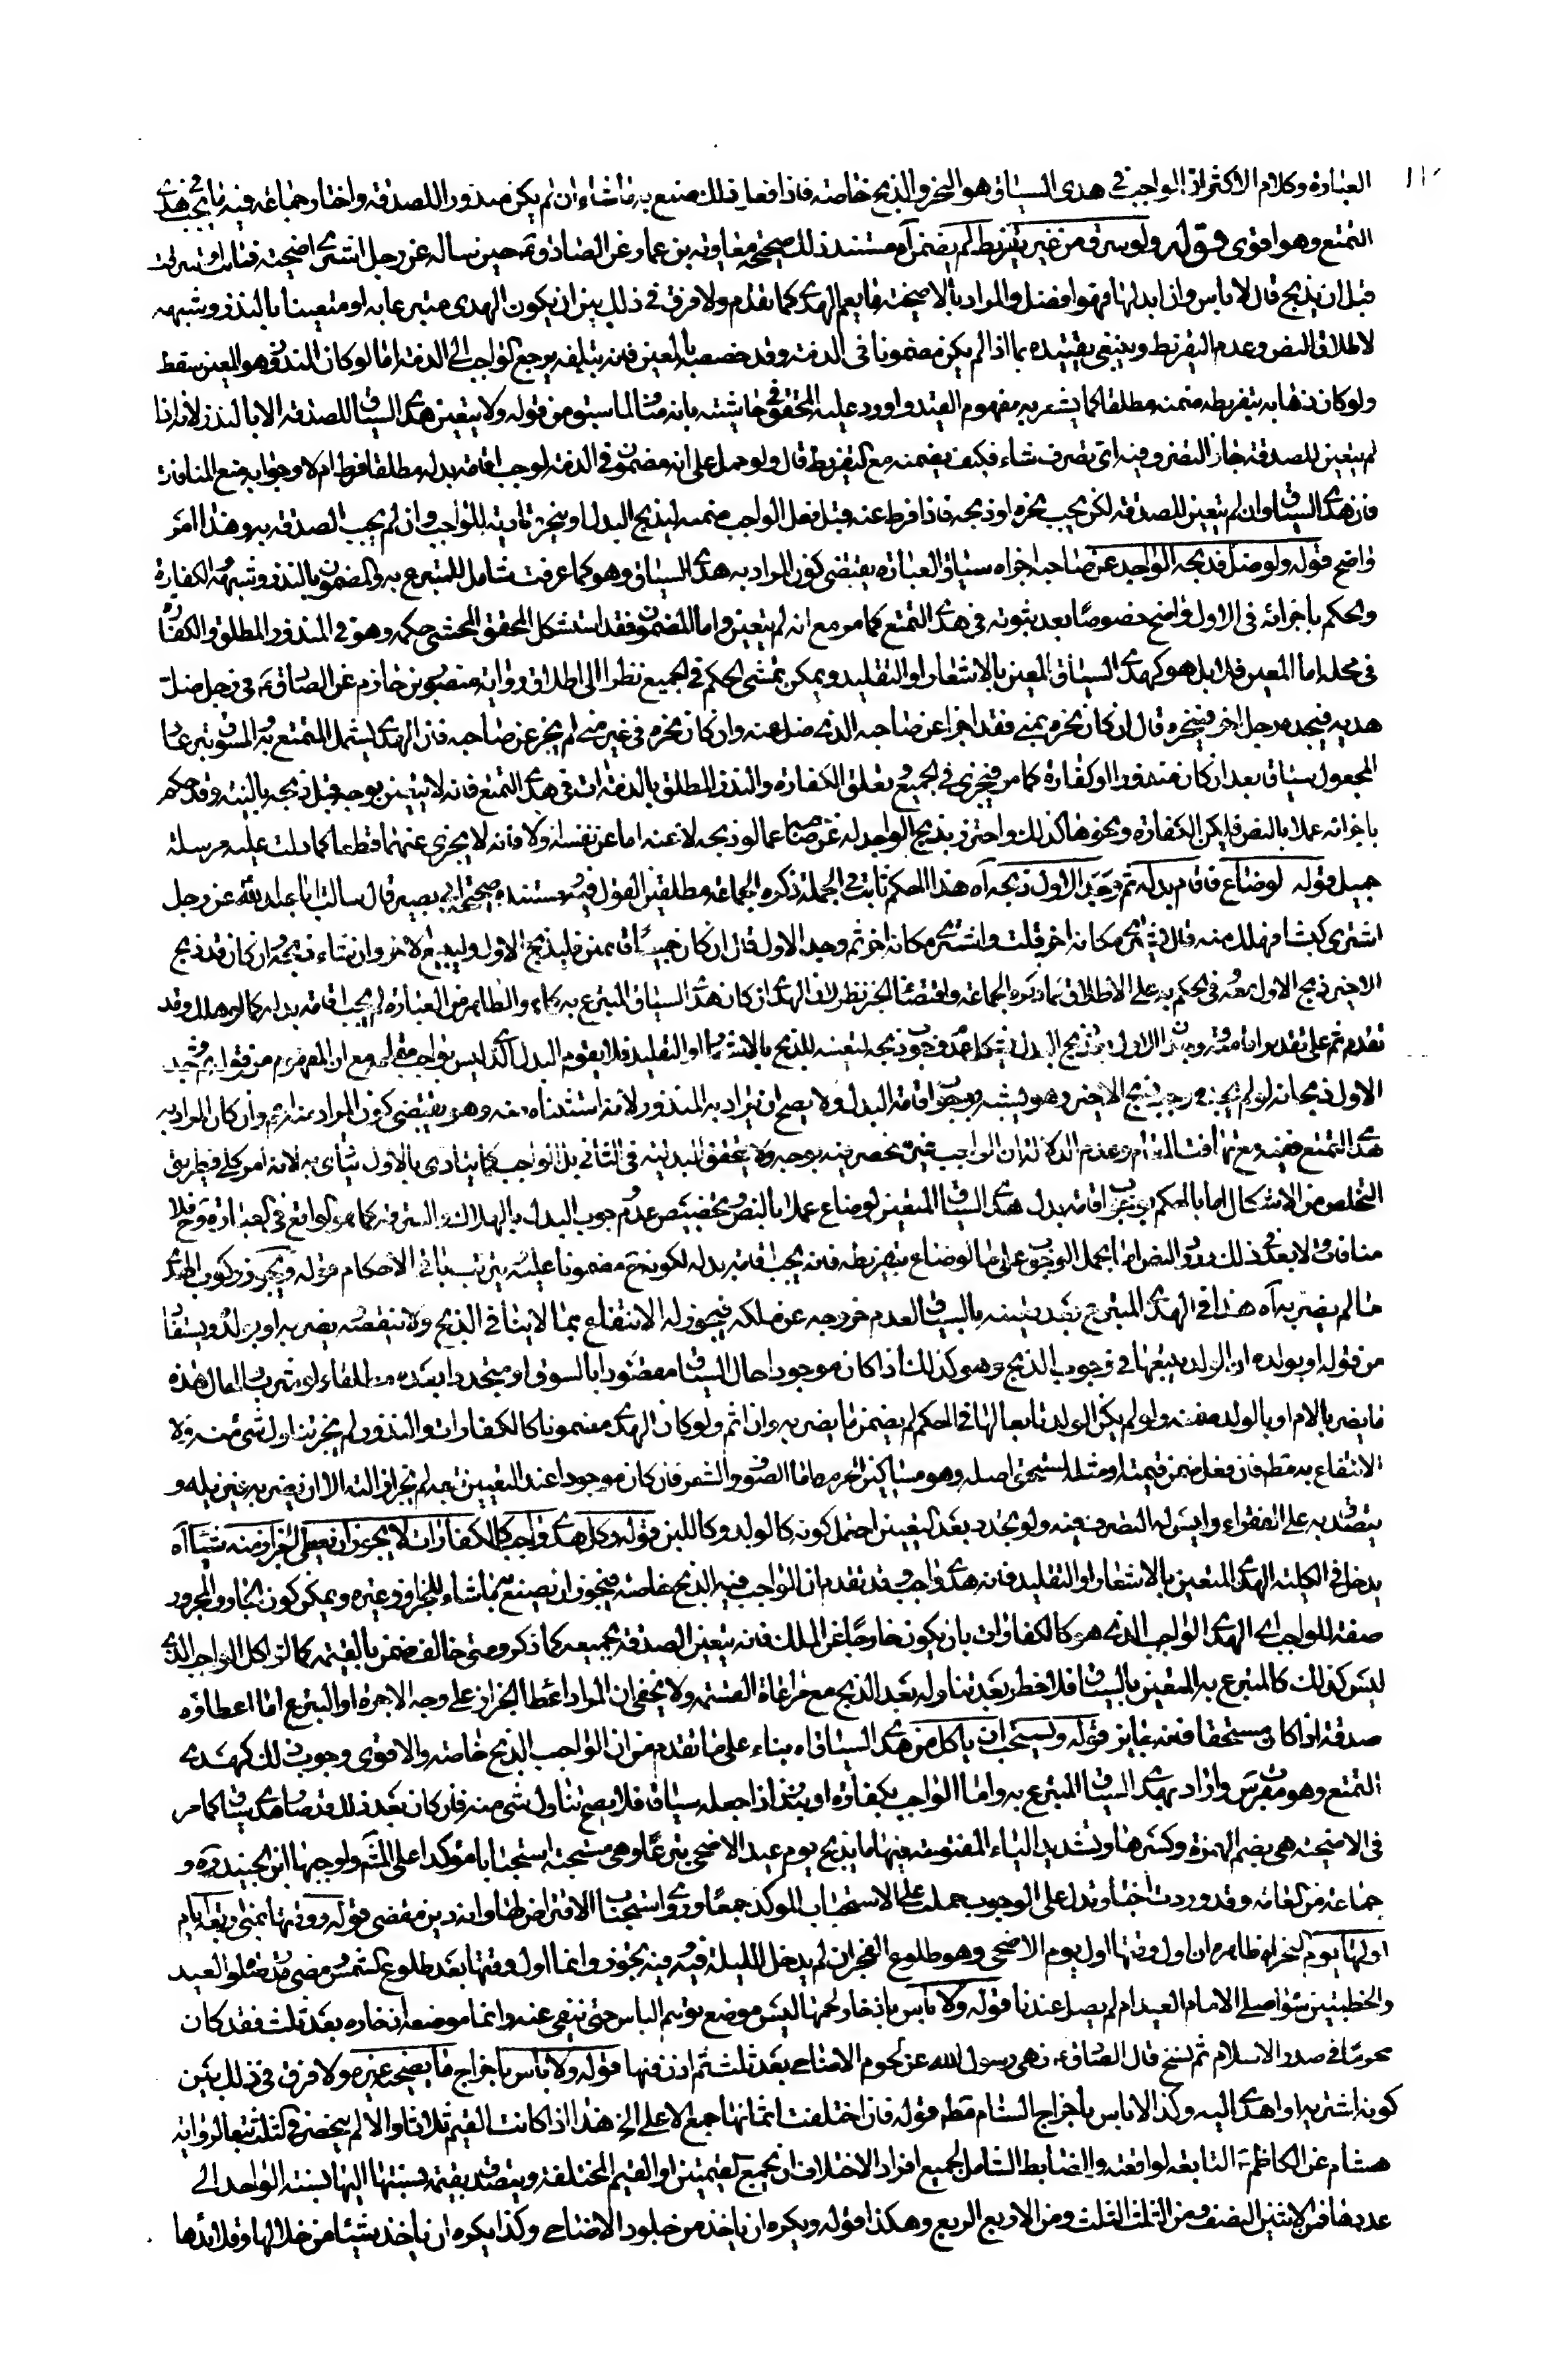 العبارة وكلام الأكثر ان الواجب في هدى السياق هو النحر والذبح خاصة فاذا فعل ذلك صنع به ما شاء ان لم يكن منذورا للصدقة واختار جماعة فيه ما يجب في هدى
التمتع وهو اقوى قوله ولو سرق من غير تفريط لم يضمن اه مستند ذلك صحيحة معاوية بن عمار عن الصادق ع حين ساله عن رجل اشترى اضحية فماتت او سرقت
قبل ان يذبح قال لا باس وان ابدلها فهو افضل والمراد بالاضحية ما يعم الهدى كما تقدم ولا فرق في ذلك بين ان يكون الهدى متبرعا به او متعينا بالنذر وشبهه
لاطلاق النص وعدم التفريط وينبغي تقييده بما اذا لم يكن مضمونا في الذمة وقد خصصه بالمعين فانه بتلفه يرجع الواجب الى الذمة اما لو كان المنذور هو المعين سقط
ولو كان ذهابه بتفريطه ضمنه مطلقا كما يشعر به مفهوم القيد واورد عليه المحقق في حاشيته بانه مناف لما سبق من قوله ولا يتعين هدى السياق للصدقة الا بالنذر لانه اذا
لم يتعين للصدقة جاز التصرف فيه اى تصرف شاء فكيف يضمنه مع التفريط قال ولو حمل على انه مضمون في الذمة لوجب اقامة بدله مطلقا فرط ام لا وجوابه منع المنافاة
فان هدى السياق وان لم يتعين للصدقة لكن يجب نحره او ذبحه فاذا فرط عنه قبل فعل الواجب ضمنه ليذبح البدل او ينحر تادية للواجب وان لم يجب الصدقة به وهذا امر
واضح قوله ولو ضل فذبحه الواجد عن صاحبه اجزاه سياق العبارة يقتضى كون المراد به هدى السياق وهو كما عرفت شامل للمتبرع به والمضمون بالنذر وشبهه الكفارة
والحكم باجزائه في الاول واضح خصوصا بعد ثبوته في هدى التمتع كما مر مع انه لم يتعين واما المضمون فقد استشكل المحقق المحشى حكمه وهو في المنذور المطلق والكفارات
في محله اما المعين فلا بل هو كهدى السياق المعين بالاشعار او التقليد ويمكن تمشى الحكم في الجميع نظرا الى اطلاق رواية منصور بن حازم عن الصادق ع في رجل ضل
هديه فيجده رجل اخر فينحره قال ان كان نحره بمنى فقد اجزا عن صاحبه الذي ضل عنه وان كان نحره في غير منى لم يجز عن صاحبه فان الهدى يشمل المتمتع به والمسوق تبرعا
المجعول سياقا بعد ان كان منذورا او كفارة كما مر فيجزى في الجميع وتعلق الكفارة والنذر المطلق بالذمة ات في هدى التمتع فانه لا يتعين بوجه قبل ذبحه بالنية وقد حكم
باجزائه عملا بالنص فليكن الكفارة ونحوها كذلك واحترز بذبح الواجد له عن صاحبه عما لو ذبحه لا عنه اما عن نفسه او لا فانه لا يجزى عنهما قطعا كما دلت عليه مرسلة
جميل قوله لو ضاع فاقام بدله ثم وجد الاول ذبحه اه هذا الحكم ثابت في الجملة ذكره الجماعة مطلقين القول فيه ومستنده صحيحة ابى بصير قال سالت ابا عبد الله عن رجل
اشترى كبشا فهلك منه قال يشترى مكانه اخر قلت واشترى مكانه اخر ثم وجد الاول قال ان كان جميعا قائمين فليذبح الاول وليبع الاخر وان شاء ذبحه وان كان قد ذبح
الاخير ذبح الاول معه فالحكم به على الاطلاق كما ذكره الجماعة واقتضاه الخبر نظر لان الهدى ان كان هدى السياق المتبرع به والظاهر من العبارة لم يجب اقامة بدله كما لو هلك وقد
تقدم ثم على تقدير اقامته ووجدان الاول بعد ذبح البدل يشكل عدم وجوب ذبحه لتعينه للذبح بالاشعار او التقليد فلا يقوم البدل الذي ليس بواجب مقامه مع ان المفهوم من قوله ثم وجد
الاول ذبحه انه لو لم يجده وجب ذبح الاخير وهو يشبه وجوب اقامة البدل ولا يصح ان يراد به المنذور لانه استثناه منه وهو يقتضى كون المراد منه وان كان المراد به
هدى التمتع ففيه مع منافاة المقام وعدم الدلالة ان الواجب غير منحصر فيه بوجه ولا يتحقق البدلية في الثاني بل الواجب كما يتادى بالاول يتادى به لانه امر كلى فطريق
التخلص من الاشكال اما بالحكم بوجوب اقامة بدل هدى السياق المتعين لو ضاع عملا بالنص وتخصيص عدم وجوب البدل بالهلاك والسرقة كما هو الواقع في العبارة وح فلا
منافاة ولا بعد في ذلك بعد ورود النص او بحمل الوجوب على ما لو ضاع بتفريطه فانه يجب اقامة بدله لكونه ح مضمونا عليه يترتب باقى الاحكام قوله ويجوز ركوب الهدى
ما لم يضر به اه هذا في الهدى المتبرع بعد تعينه بالسياق لعدم خروجه عن ملكه فيجوز له الانتفاع بما لا ينافى الذبح ولا ينقصه يضر به او بولده ويستفاد
من قوله او بولده ان الولد يتبعها في وجوب الذبح وهو كذلك اذا كان موجودا حال السياق مقصودا بالسوق او متجددا بعده مطلقا ولو شرب اللبن هذه
ما يضر بالام او بالولد ضمنه ولو لم يكن الولد تابعا لها في الحكم لم يضمن ما يضر به وان اثم ولو كان الهدى مضمونا كالكفارات والنذور لم يجز تناول شئ منه ولا
الانتفاع به مطم فان فعل ضمن قيمته او مثله لمستحق اصله وهو مساكين الحرم واما الصوف والشعر فان كان موجودا عند التعيين تبعه لم يجز ازالته الا ان يضر به فيزيله و
يتصدق به على الفقراء وليس له التصرف فيه ولو تجدد بعد التعيين احتمل كونه كالولد وكاللبن قوله وكل هدى واجب كالكفارات لا يجوز ان يعطى الجزار منه شيئا اه
يدخل في الكلية الهدى المتعين بالاشعار او التقليد فانه هدى واجب وقد تقدم ان الواجب فيه الذبح خاصة فيجوز ان يصنع به ما شاء للجزار وغيره ويمكن كون الجار والمجرور
صفة للواجب اى الهدى الواجب الذي هو كالكفارات بان يكون خارجا عن الملك فانه يتعين الصدقة بجميعه كما ذكر ومتى خالف ضمن بالقيمة كالاكل الواجب الذي
ليس كذلك كالمتبرع به المتعين بالسياق فلا حظر بعد تناوله بعد الذبح مع مراعاة القسمة ولا يخفى ان المراد اعطا الجزار على وجه الاجرة او التبرع اما اعطاؤه
صدقة اذا كان مستحقا فانه جايز قوله ويستحب ان ياكل من هدى السياق اه بناء على ما تقدم من ان الواجب الذبح خاصة والاقوى وجوب ذلك كهدى
التمتع وهو مقرس واراد بهدى السياق المتبرع به واما الواجب بكفارة او نذر اذا جعله سياقا فلا يصح تناول شئ منه فان كان بعد ذلك قد صار هدى سياق كما مر
في الاضحية هى بضم الهمزة وكسرها وتشديد الياء المفتوحة فيها ما يذبح يوم عيد الاضحى تبرعا وهى مستحبة استحبابا مؤكدا على المش واوجبها ابن الجنيد ره و
جماعة من العامة وقد وردت اخبار تدل على الوجوب حملت على الاستحباب المؤكد جمعا وروى استحباب الاقتراض لها وانه دين مقضى قوله ووقتها بمنى اربعة ايام
اولها يوم النحر اه ظاهره ان اول وقتها اول يوم الاضحى وهو طلوع الفجر ان لم يدخل الليلة فيه وفيه تجوز وانما اول وقتها بعد طلوع الشمس ومضى قدر صلوة العيد
والخطبتين سواء صلى الامام العيد ام لم يصل عندنا قوله ولا باس بادخار لحمها ليس موضع توهم الباس حتى ينفى عنه وانما موضعه ادخاره بعد ثلث فقد كان
محرما في صدر الاسلام ثم نسخ قال الصادق ع نهى رسول الله عن لحوم الاضاحى بعد ثلث ثم اذن فيها قوله ولا باس باخراج ما يضحيه غيره ولا فرق في ذلك بين
كونه اشتريه او اهدى اليه وكذا لا باس باخراج السنام مطم قوله فان اختلفت اثمانها جمع الاعلى الخ هذا اذا كانت القيم ثلاثا والا لم ينحصر في الثلث تبعا لرواية
هشام عن الكاظم ع التابعة لواقعة والضابط الشامل لجميع افراد الاختلاف ان يجمع القيمتين او القيم المختلفة ويتصدق بقيمة نسبتها اليها نسبة الواحد الى
عددها فمن الاثنين النصف ومن الثلث الثلث ومن الاربع الربع وهكذا قوله ويكره ان ياخذ من جلود الاضاحى وكذا يكره ان ياخذ شيئا من جلالها وقلائدها